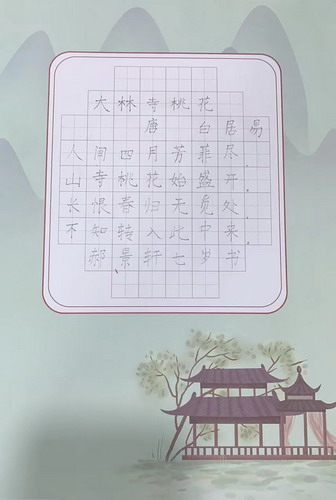 大林寺桃花
唐 白居易
人间四月芳菲尽，
山寺桃花始盛开。
长恨春归无觅处，
不知转入此中来。
郝景轩七岁书